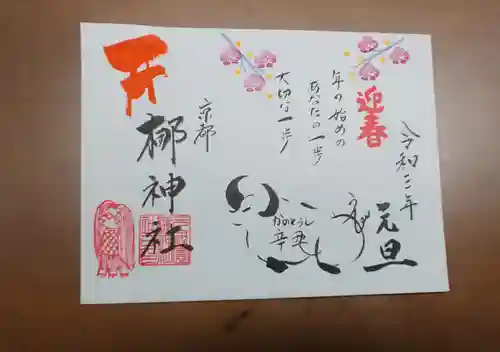 迎春
令和三年
元旦
年の始めの
あなたの一歩
大切な一歩
かのとうし
辛丑
京都
梛神社